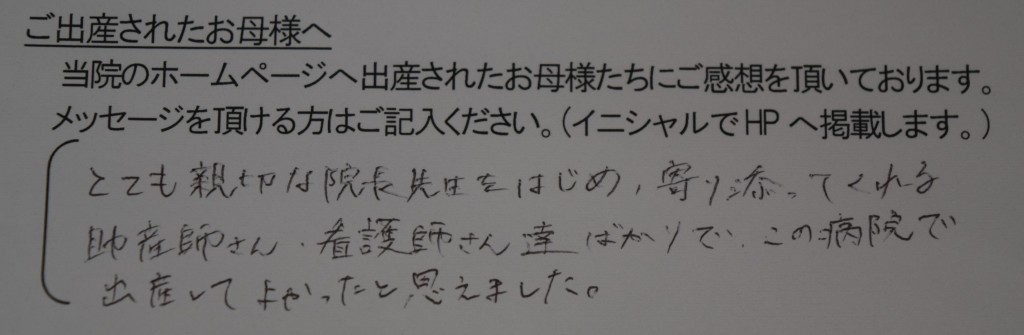 ご出産されたお母様へ
当院のホームページへ出産されたお母様たちにご感想を頂いております。
メッセージを頂ける方はご記入ください。（イニシャルでHPへ掲載します。）
とても親切な院長先生をはじめ、寄り添ってくれる
助産師さん・看護師さん達ばかりで、この病院で
出産してよかったと思えました。